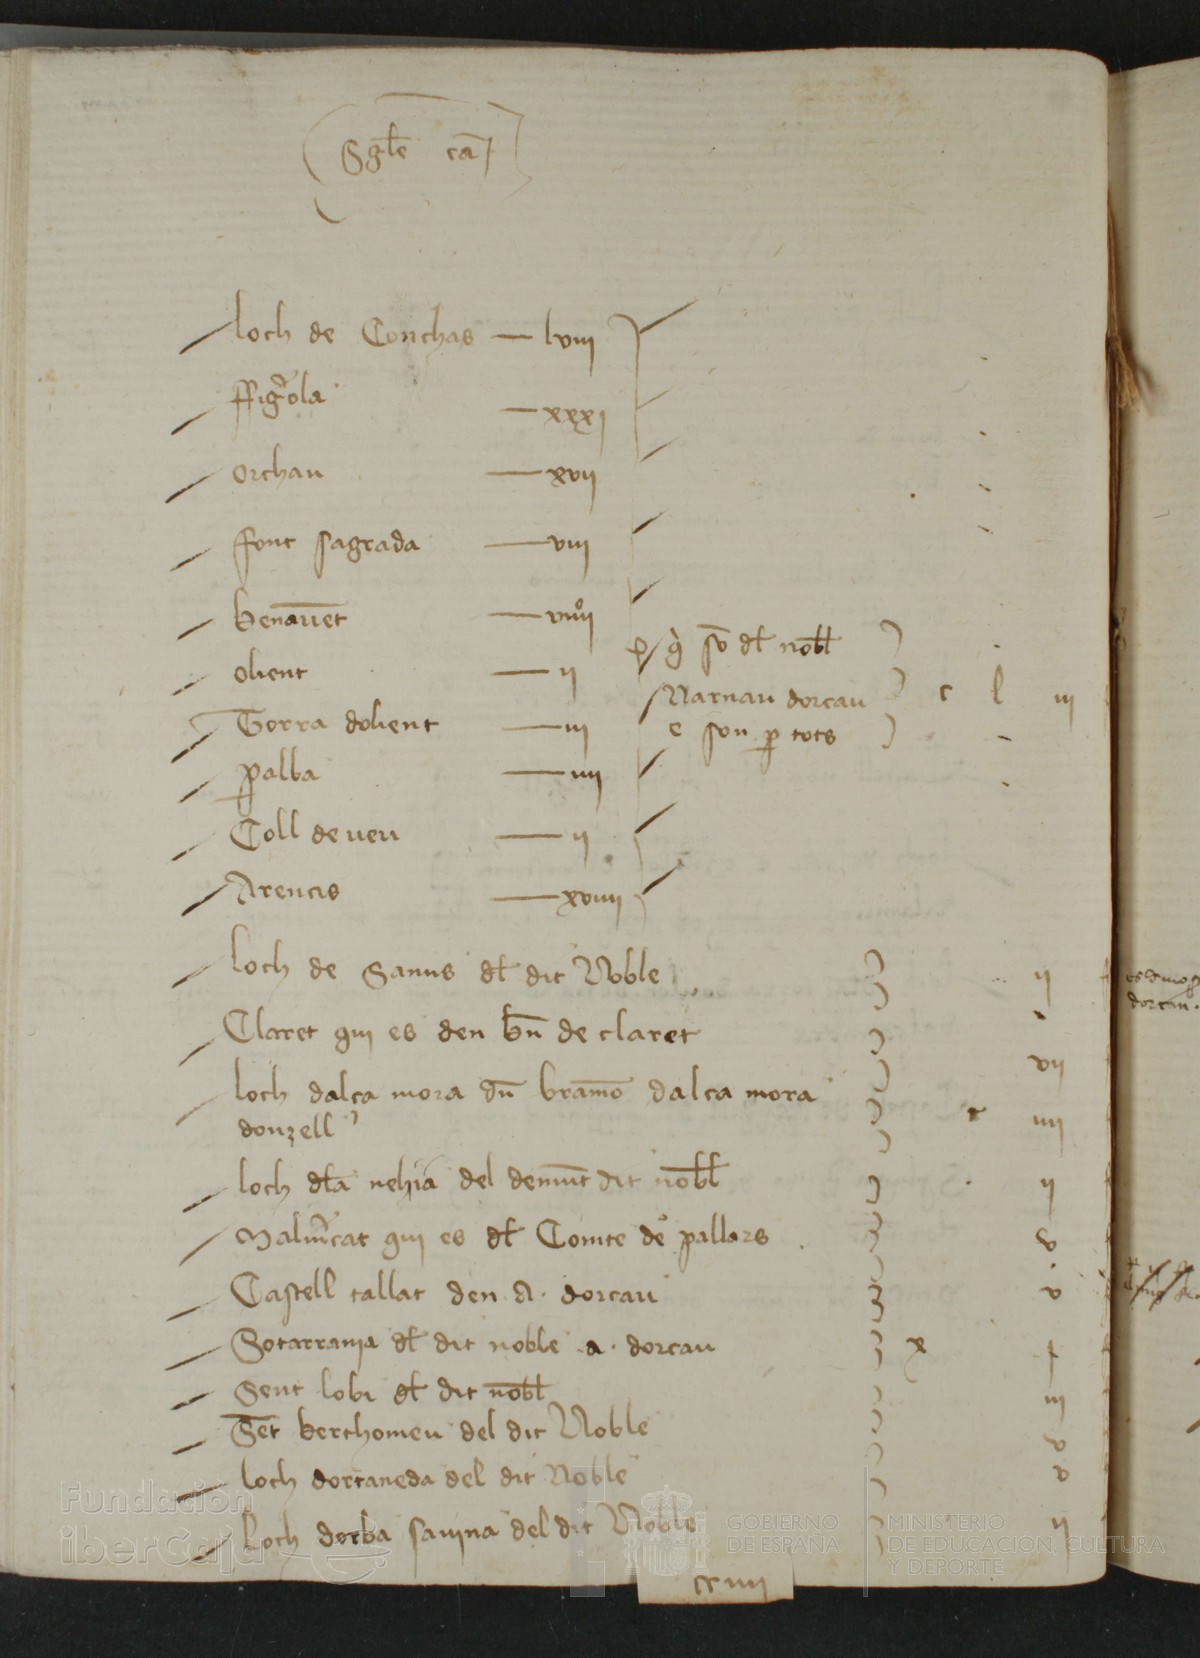 loch de Conchas — lviii
ffig̃ola — xxxi
orchau — xvii
ffont sagrada — viii
benauēt — viiii
olient — ii
Torra dolient — iii
ꝑalba — iiii
Coll de neu — ii
Arencis — xviiii
q̃ sō dł nobł
Narnau dorcau c l iii
e son ꝑ tots
loch de Sanus dł dit Noble ii
Claret qui es den bñ de claret vii
loch dalça mora dñ bramō dalça mora iiii
donzell
loch dła nehia del demūt dit nobł ii
qui es dł Comte de pallars v
Castell tallat den A. dorcau v
Sotarrania dł dit noble a. dorcau x
Sent lobi dł dit nobł iii
Sēt berthomeu del dit Noble v
loch dortaneda del dit Noble v
loch dorba sauina del dit Noble ii
dorcau.
Fundación
iberCaja
GOBIERNO
DE ESPAÑA
MINISTERIO
DE EDUCACIÓN, CULTURA
Y DEPORTE